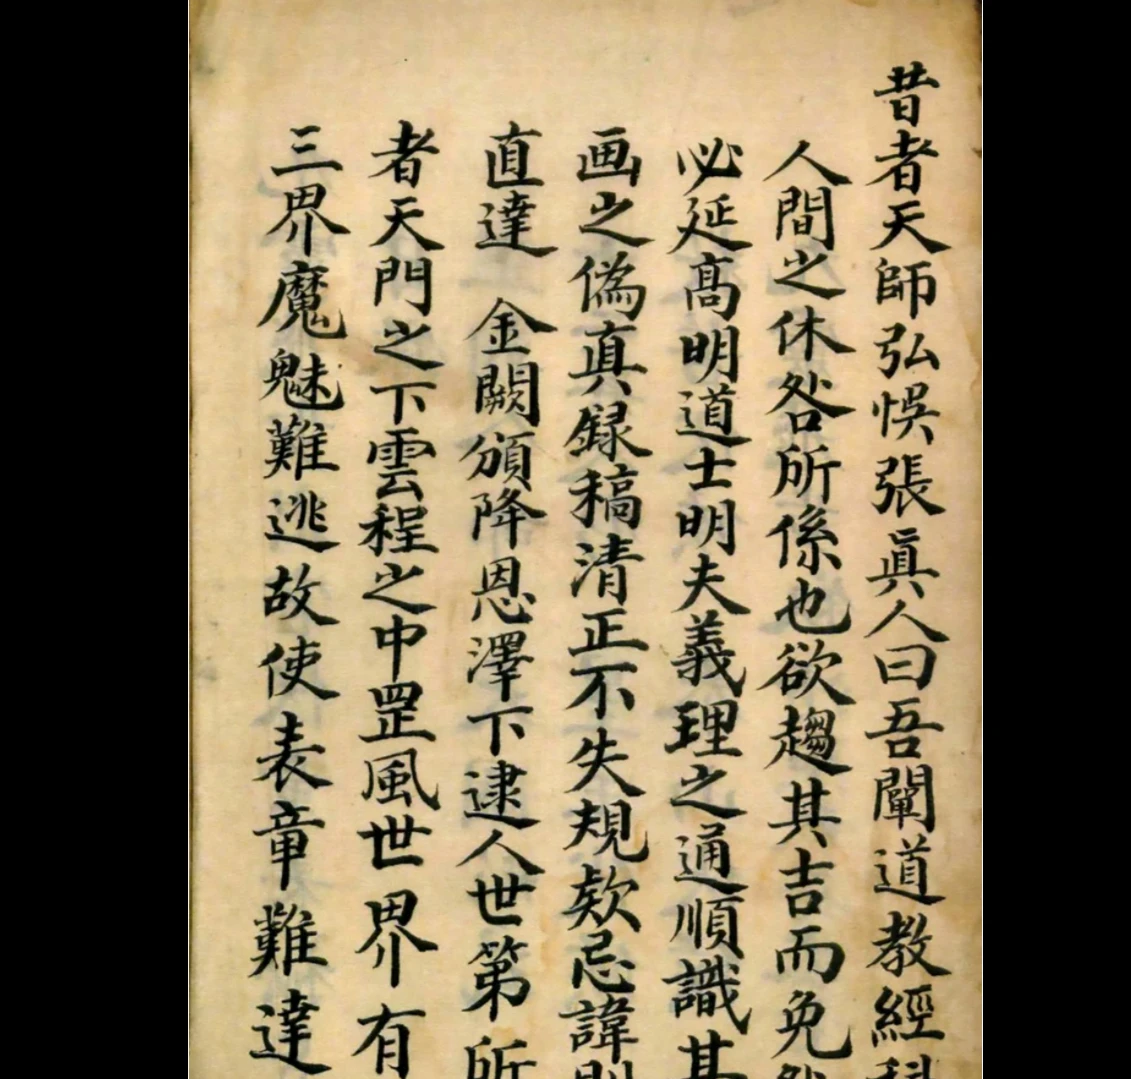 昔者天師弘悞張眞人曰吾闡道教經科
人間之休咎所係也欲趨其吉而免
必延髙明道士明夫義理之通順識其
画之偽真録稿清正不失規欵忌諱則
直達 金闕頒降恩澤下逮人世第所
者天門之下雲程之中罡風世界有
三界魔魅難逃故使表章難達